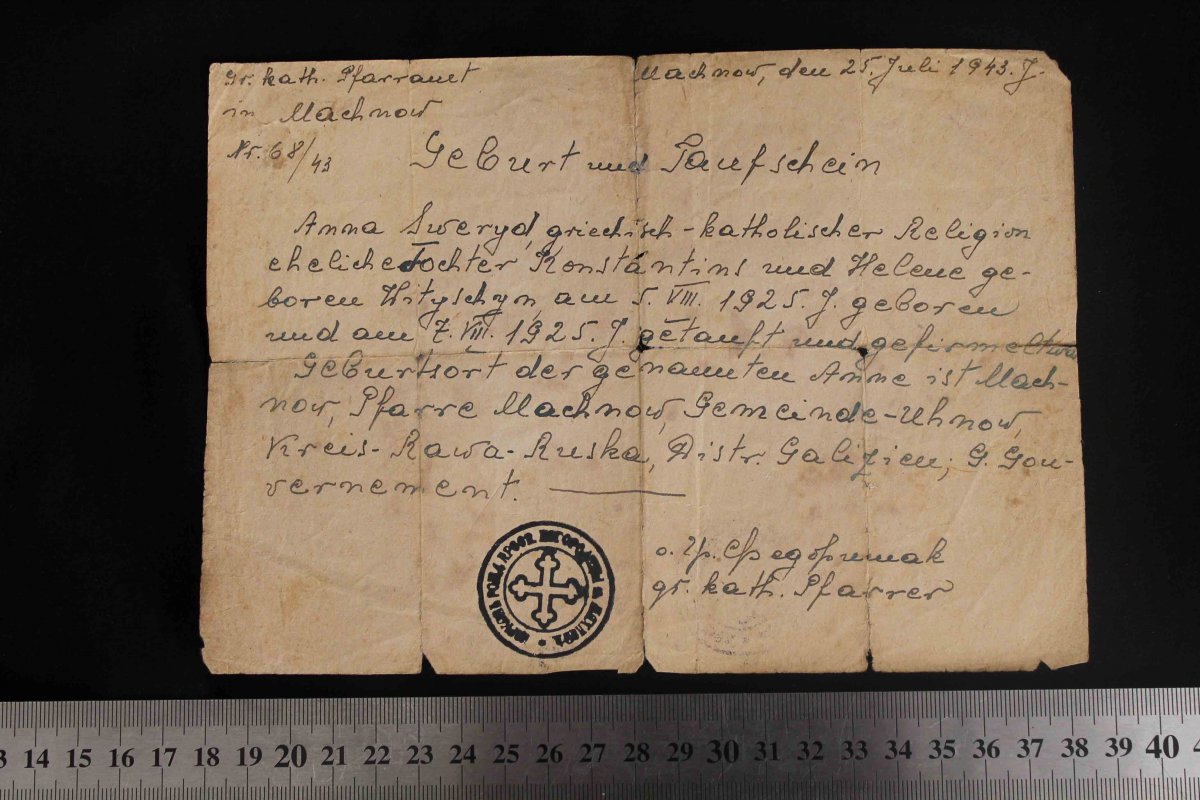 Gr. kath. Pfarramt
in Machnow
Nr. 68/43
Machnow, den 25. Juli 1943. J.
Geburt und Taufschein
Anna Sweryd, griechisch-katholischer Religion
eheliche Tochter Konstantins und Helene ge-
boren Hityschyn, am 5. VIII. 1925. J. geboren
und am 7. VIII. 1925. J. getauft und gefirmelt
Geburtsort der genannten Anne ist Mach-
now, Pfarre Machnow, Gemeinde-Uhnow,
Kreis-Rawa-Ruska, Distr. Galizien, G. Gou-
vernement.
о. Гр. Федоришак
gr. kath. Pfarrer
13 14 15 16 17 18 19 20 21 22 23 24 25 26 27 28 29 30 31 32 33 34 35 36 37 38 39 40